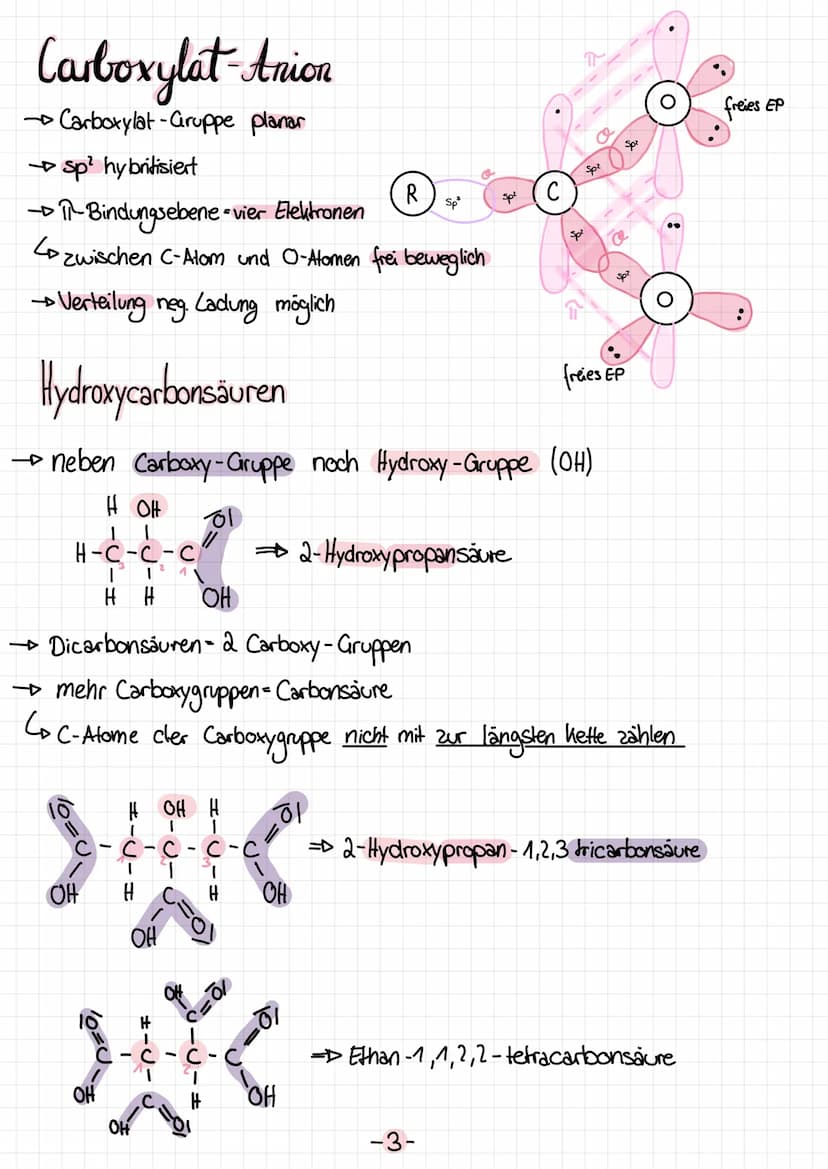 Carboxylat-Anion
→ Carboxylat-Gruppe planar
→ sp² hybritisiert
→ π-Bindungsebene = vier Elektronen
↳ zwischen C-Atom und O-Atomen frei beweglich
→ Verteilung neg. Ladung möglich
π
O
freies EP
σ
sp²
sp²
R
sp³
σ
sp²
C
sp²
σ
sp²
O
π
freies EP
Hydroxycarbonsäuren
→ neben Carboxy-Gruppe noch Hydroxy-Gruppe (OH)
H OH O
H-C-C-C ⇒ 2-Hydroxypropansäure
3 2 1
H H OH
→ Dicarbonsäuren = 2 Carboxy-Gruppen
→ mehr Carboxygruppen = Carbonsäure
↳ C-Atome der Carboxygruppe nicht mit zur längsten Kette zählen
O H OH H O
C-C-C-C-C ⇒ 2-Hydroxypropan-1,2,3 tricarbonsäure
1 2 3
OH H C H OH
OH O
OH O
O H C O
C-C-C-C ⇒ Ethan-1,1,2,2-tetracarbonsäure
1 2
OH C H OH
OH O
-3-